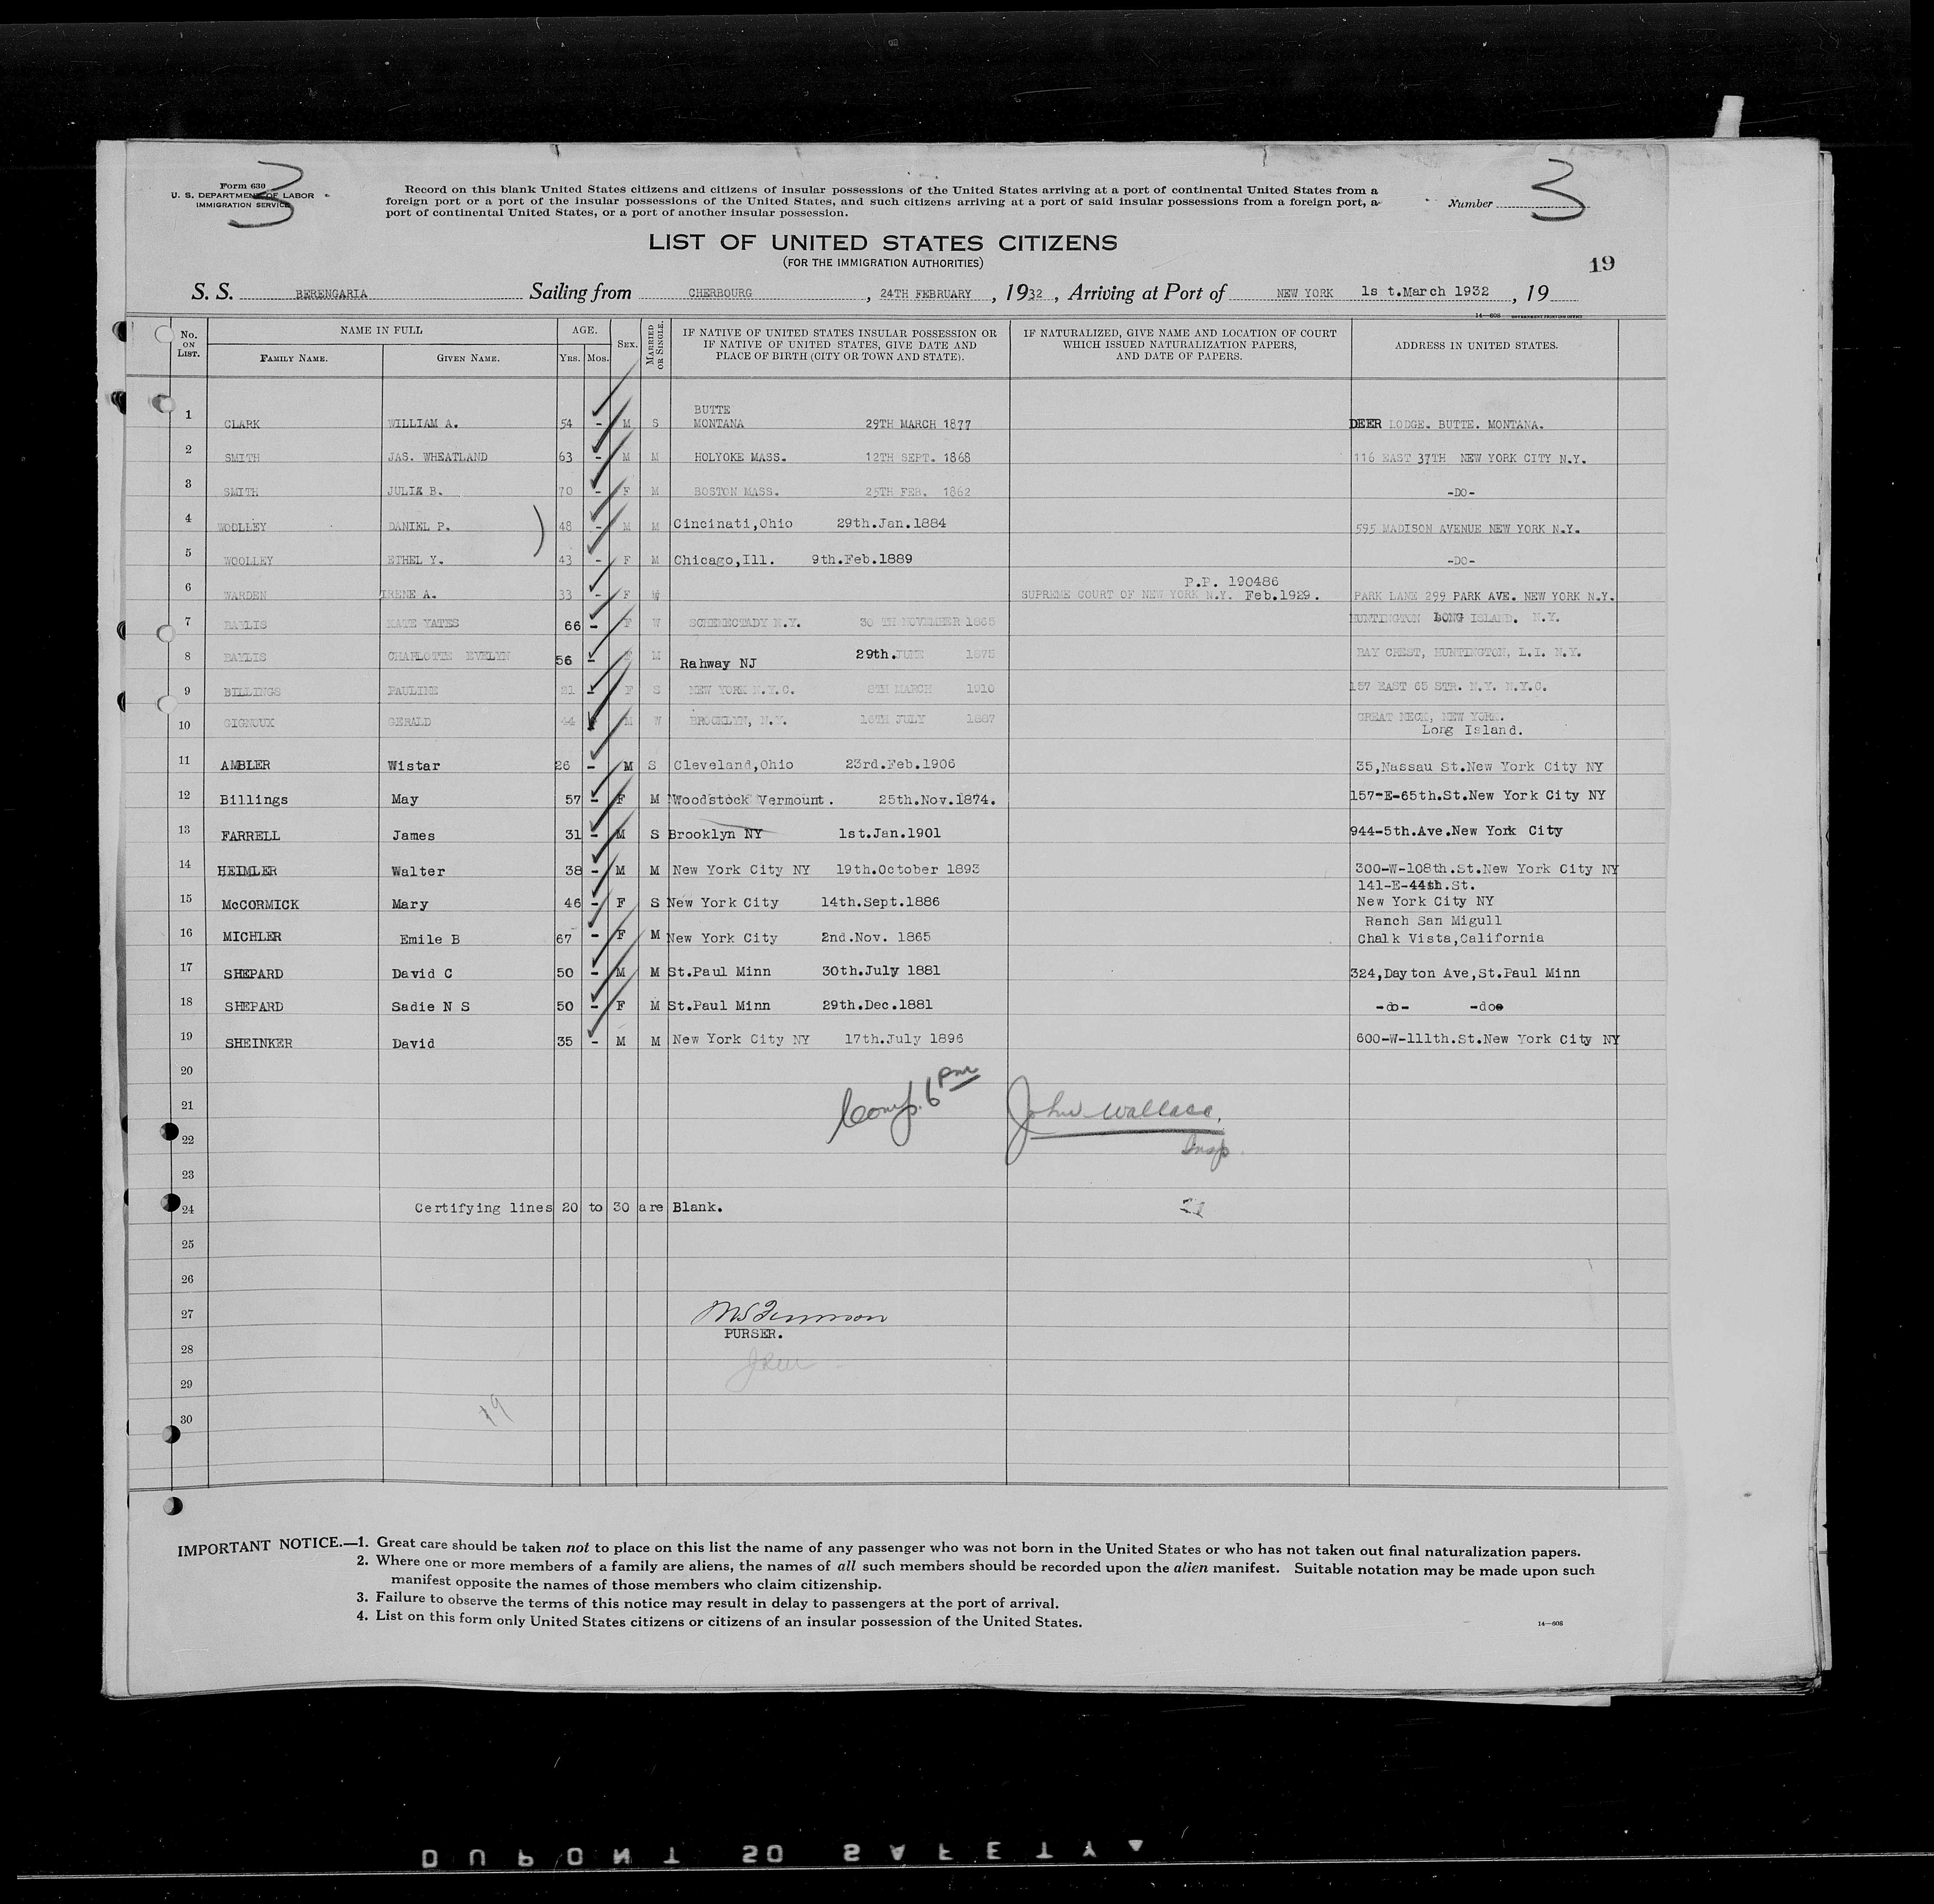 3
3
Form 630
U. S. DEPARTMENT OF LABOR
IMMIGRATION SERVICE
Record on this blank United States citizens and citizens of insular possessions of the United States arriving at a port of continental United States from a
foreign port or a port of the insular possessions of the United States, and such citizens arriving at a port of said insular possessions from a foreign port, a
port of continental United States, or a port of another insular possession.
Number
LIST OF UNITED STATES CITIZENS
(FOR THE IMMIGRATION AUTHORITIES)
19
S. S. BERENGARIA Sailing from CHERBOURG, 24TH FEBRUARY, 1932, Arriving at Port of NEW YORK 1s t.March 1932, 19
14—608 GOVERNMENT PRINTING OFFICE
No. ON LIST. NAME IN FULL FAMILY NAME. GIVEN NAME. AGE. YRS. MOS. SEX. MARRIED OR SINGLE. IF NATIVE OF UNITED STATES INSULAR POSSESSION OR IF NATIVE OF UNITED STATES, GIVE DATE AND PLACE OF BIRTH (CITY OR TOWN AND STATE). IF NATURALIZED, GIVE NAME AND LOCATION OF COURT WHICH ISSUED NATURALIZATION PAPERS, AND DATE OF PAPERS. ADDRESS IN UNITED STATES.
1 CLARK WILLIAM A. 54 - M S BUTTE MONTANA 29TH MARCH 1877 DEER LODGE. BUTTE. MONTANA.
2 SMITH JAS. WHEATLAND 63 - M M HOLYOKE MASS. 12TH SEPT. 1868 116 EAST 37TH NEW YORK CITY N.Y.
3 SMITH JULIA B. 70 - F M BOSTON MASS. 25TH FEB. 1862 -DO-
4 WOOLLEY DANIEL P. ) 48 - M M Cincinati,Ohio 29th.Jan.1884 595 MADISON AVENUE NEW YORK N.Y.
5 WOOLLEY ETHEL Y. 43 - F M Chicago,Ill. 9th.Feb.1889 -DO-
6 WARDEN IRENE A. 33 - F P.P. 190486 SUPREME COURT OF NEW YORK N.Y. Feb.1929. PARK LANE 299 PARK AVE. NEW YORK N.Y.
7 BAYLIS KATE YATES 66 - F W SCHENECTADY N.Y. 30 TH NOVEMBER 1865 HUNTINGTON LONG ISLAND. N.Y.
8 BAYLIS CHARLOTTE EVELYN 56 - F M Rahway NJ 29th.JUNE 1875 BAY CREST, HUNTINGTON, L.I. N.Y.
9 BILLINGS PAULINE 21 - F S NEW YORK N.Y.C. 8TH MARCH 1910 157 EAST 65 STR. N.Y. N.Y.C.
10 GIGNOUX GERALD 44 M W BROOKLYN, N.Y. 16TH JULY 1887 GREAT NECK, NEW YORK. Long Island.
11 AMBLER Wistar 26 - M S Cleveland,Ohio 23rd.Feb.1906 35,Nassau St.New York City NY
12 Billings May 57 - F M Woodstock Vermount. 25th.Nov.1874. 157-E-65th.St.New York City NY
13 FARRELL James 31 - M S Brooklyn NY 1st.Jan.1901 944-5th.Ave.New York City
14 HEIMLER Walter 38 - M M New York City NY 19th.October 1893 300-W-108th.St.New York City NY
15 McCORMICK Mary 46 - F S New York City 14th.Sept.1886 141-E-44th.St. New York City NY
16 MICHLER Emile B 67 - F M New York City 2nd.Nov. 1865 Ranch San Migull Chalk Vista,California
17 SHEPARD David C 50 - M M St.Paul Minn 30th.July 1881 324,Dayton Ave,St.Paul Minn
18 SHEPARD Sadie N S 50 - F M St.Paul Minn 29th.Dec.1881 -do- -do
19 SHEINKER David 35 - M M New York City NY 17th.July 1896 600-W-111th.St.New York City NY
20
Comp. 6 pm
21 John Wallace.
22 Insp.
23
24 Certifying lines 20 to 30 are Blank.
25
26
27
PURSER.
28
29
19
30
IMPORTANT NOTICE.—1. Great care should be taken not to place on this list the name of any passenger who was not born in the United States or who has not taken out final naturalization papers.
2. Where one or more members of a family are aliens, the names of all such members should be recorded upon the alien manifest. Suitable notation may be made upon such
manifest opposite the names of those members who claim citizenship.
3. Failure to observe the terms of this notice may result in delay to passengers at the port of arrival.
4. List on this form only United States citizens or citizens of an insular possession of the United States.
14—608
DUPONT SO SAFETY